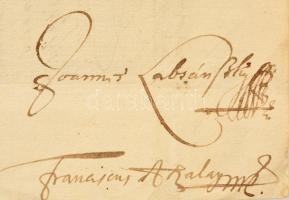 Joannes Labsánszky
Franciscus A Kalay mp.